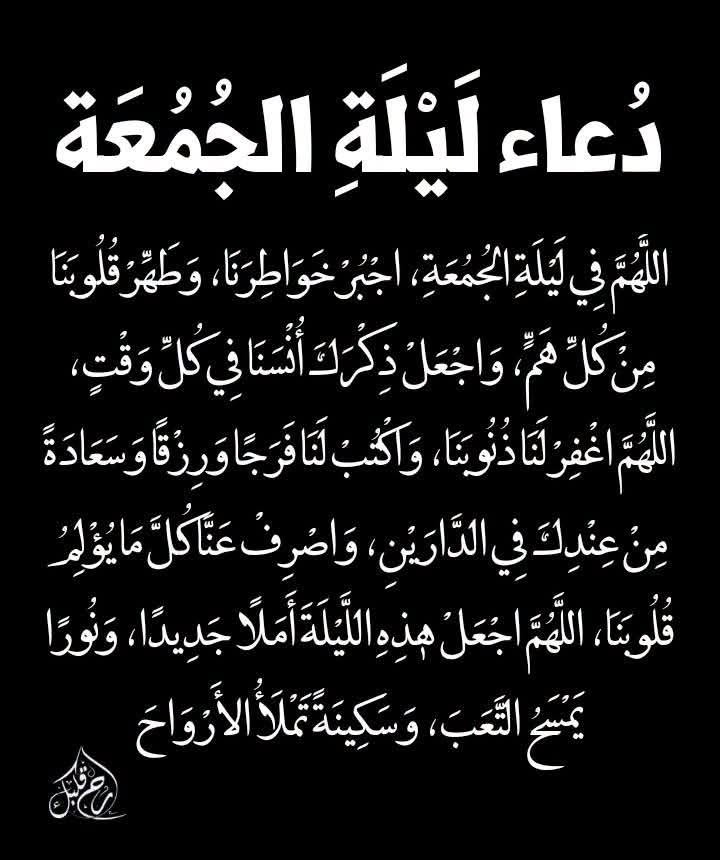 دُعاء لَيْلَةِ الجُمُعَة
اللَّهُمَّ فِي لَيْلَةِ الجُمُعَةِ، اجْبُرْ خَوَاطِرَنَا، وَطَهِّرْ قُلُوبَنَا
مِنْ كُلِّ هَمٍّ، وَاجْعَلْ ذِكْرَكَ أُنْسَنَا فِي كُلِّ وَقْتٍ،
اللَّهُمَّ اغْفِرْ لَنَا ذُنُوبَنَا، وَاكْتُبْ لَنَا فَرَجًا وَرِزْقًا وَسَعَادَةً
مِنْ عِنْدِكَ فِي الدَّارَيْنِ، وَاصْرِفْ عَنَّا كُلَّ مَا يُؤْلِمُ
قُلُوبَنَا، اللَّهُمَّ اجْعَلْ هٰذِهِ اللَّيْلَةَ أَمَلًا جَدِيدًا، وَنُورًا
يَمْسَحُ التَّعَبَ، وَسَكِينَةً تَمْلَأُ الأَرْوَاحَ